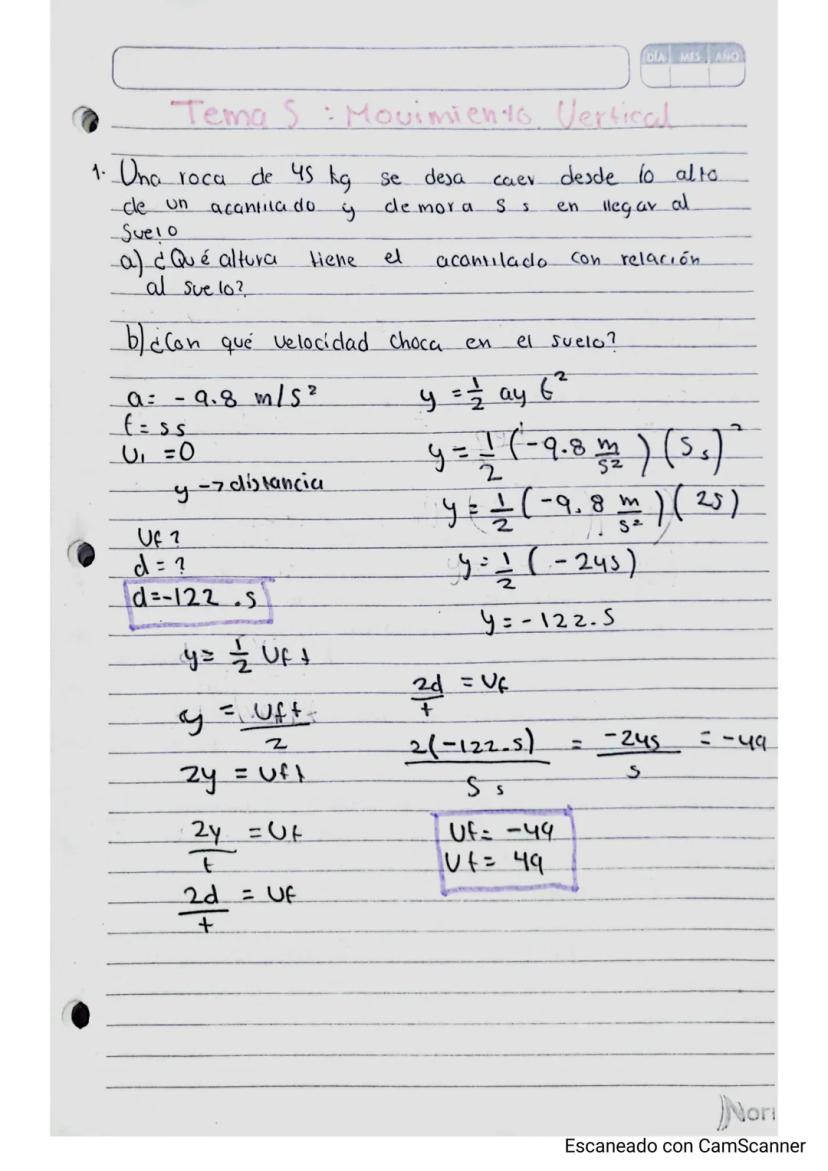 DÍA MES AÑO
Tema 5 : Movimiento Vertical
1. Una roca de 45 kg se deja caer desde lo alto
de un acantilado y demora 5 s en llegar al
suelo
a) ¿Qué altura tiene el acantilado con relación
al suelo?
b) ¿Con qué velocidad choca en el suelo?
a = - 9.8 m/s²
t = 5s
Vi = 0
y → distancia
Vf ?
d = ?
d = -122.5
y = 1/2 ay t²
y = 1/2 (-9.8 m/s²) (5s)²
y = 1/2 (-9.8 m/s²) (25)
y = 1/2 (-245)
y = -122.5
y = 1/2 Vf t
y = Vf t / 2
2y = Vf t
2y/t = Vf
2d/t = Vf
2d/t = Vf
2(-122.5) / 5 s = -245 / 5 = -49
Vf = -49
Vf = 49
Nori
Escaneado con CamScanner